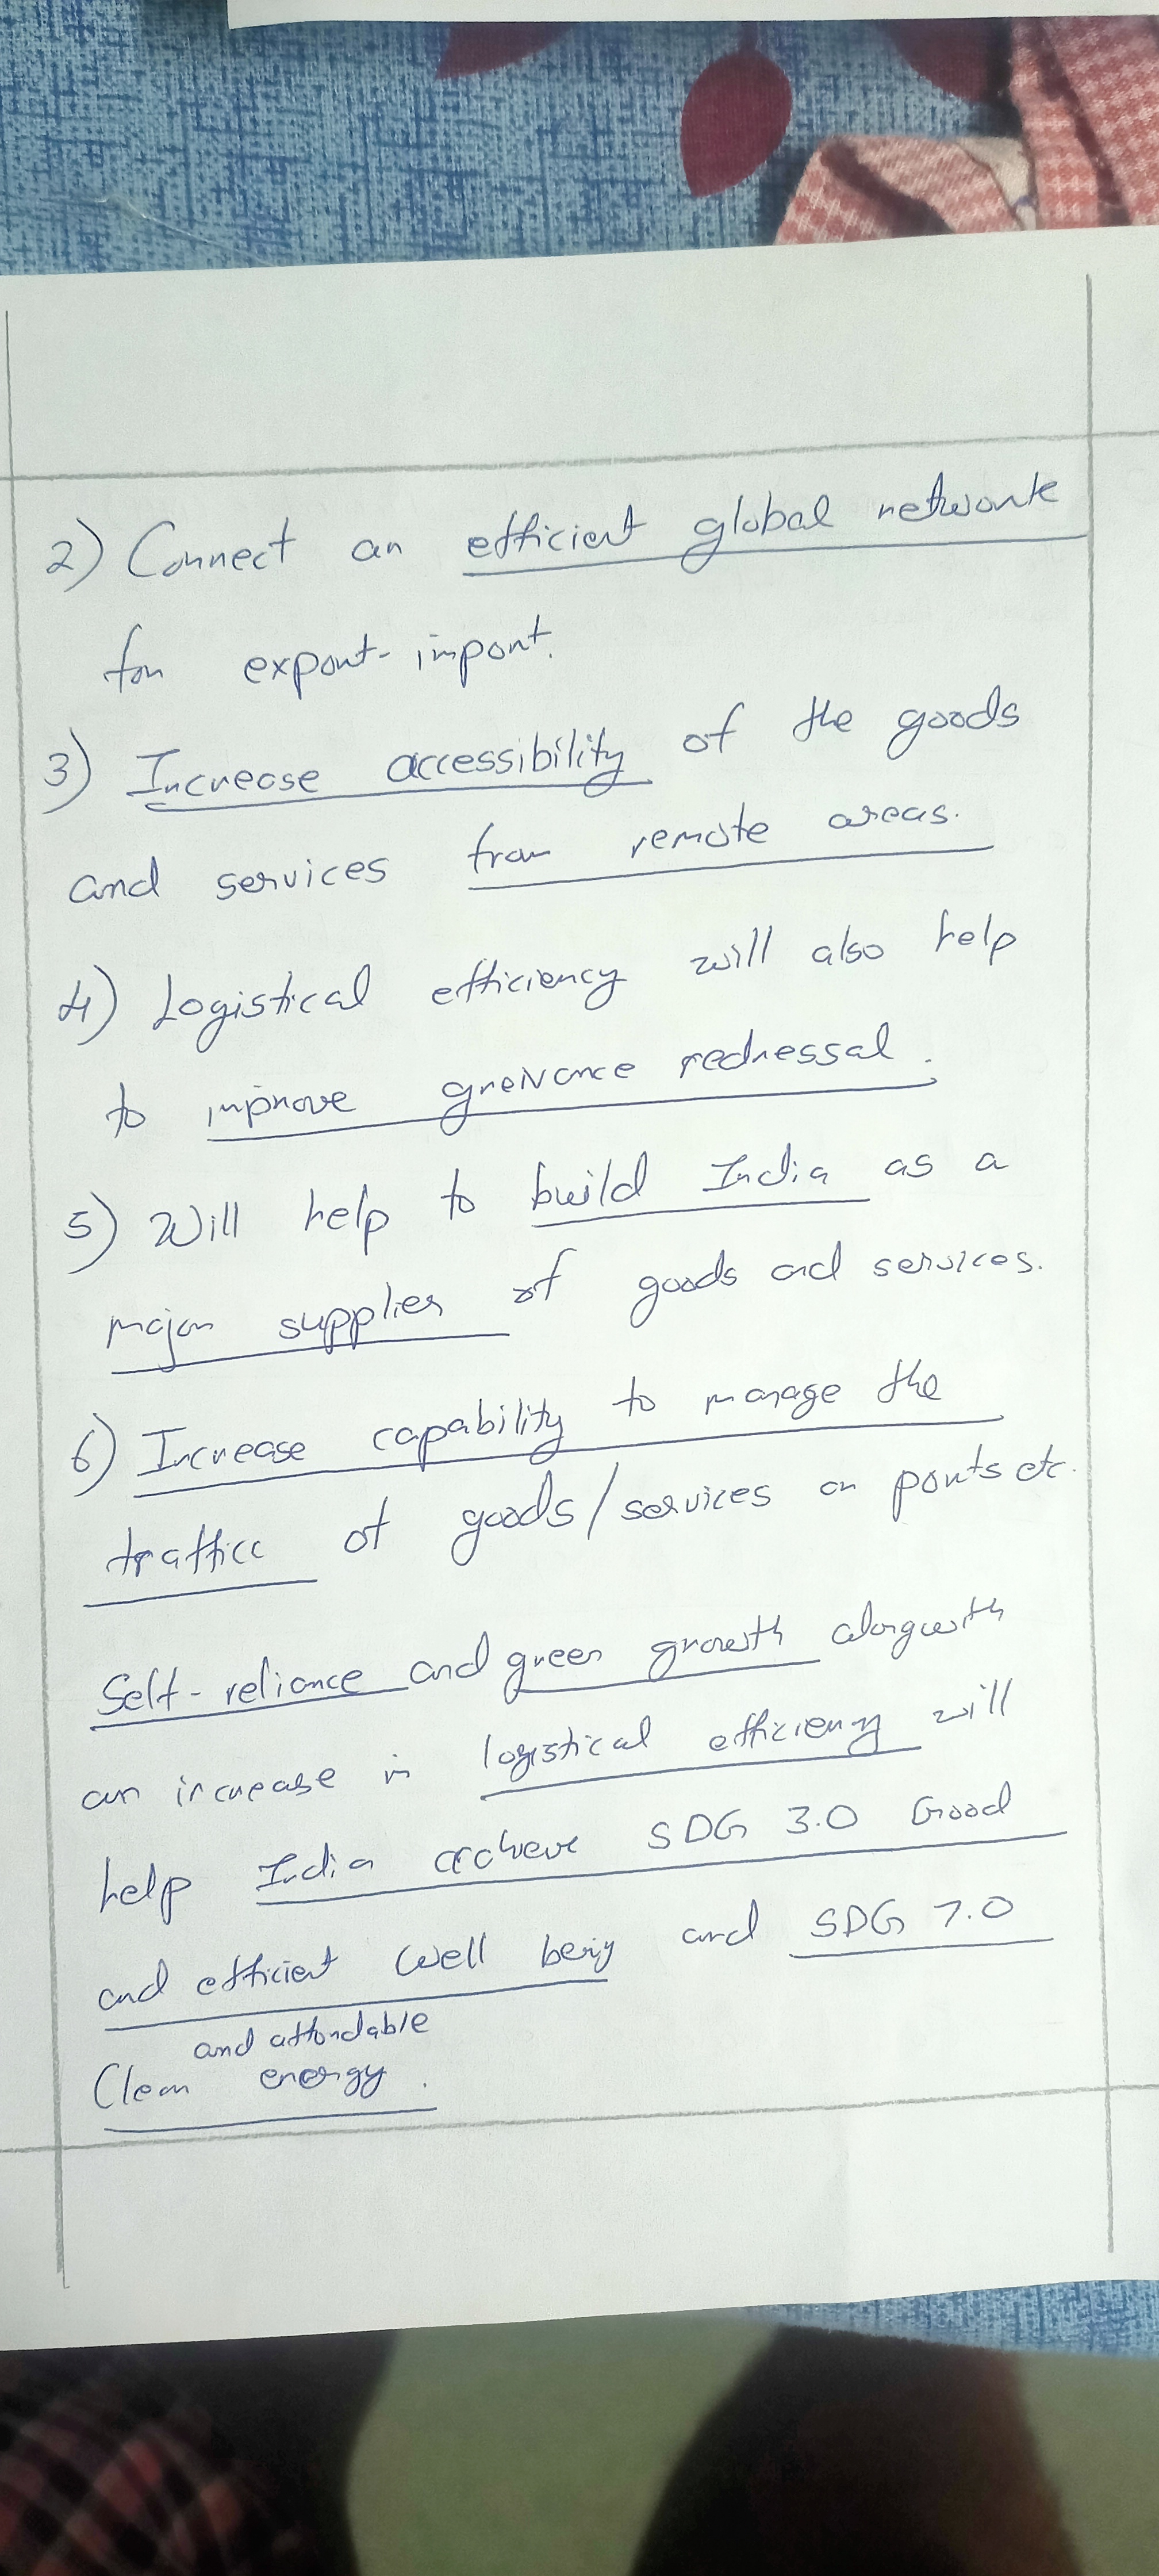 2) Connect an efficient global network
for export-import.
3) Increase accessibility of the goods
and services from remote areas.
4) Logistical efficiency will also help
to improve greivance redressal.
5) Will help to build India as a
major supplier of goods and services.
6) Increase capability to manage the
traffic of goods/services on ports etc.
Self-reliance and green growth alongwith
an increase in logistical efficiency will
help India achieve SDG 3.0 Good
and efficient well being and SDG 7.0
and affordable
Clean energy.